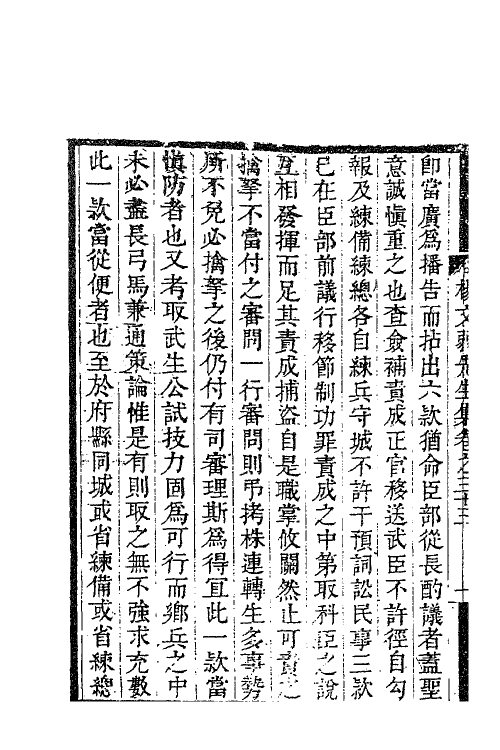 楊文弱先生集卷之三十三
卽當廣爲播告而拈出六款猶命臣部從長酌議者蓋聖
意誠愼重之也查僉補責成正官移送武臣不許徑自勾
報及練備練總各自練兵守城不許干預詞訟民事三款
已在臣部前議行移節制功罪責成之中第取科臣之說
互相發揮而足其責成捕盜自是職掌攸關然止可責之
擒拏不當付之審問一行審問則弔拷株連轉生多事勢
所不免必擒拏之後仍付有司審理斯爲得宜此一款當
愼防者也又考取武生公試技力固爲可行而鄕兵之中
未必盡長弓馬兼通策論惟是有則取之無不強求充數
此一款當從便者也至於府縣同城或省練備或省練總